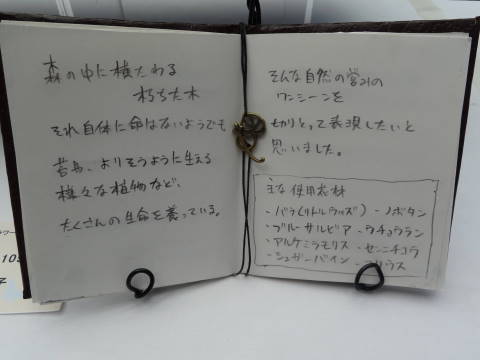 森の中に横たわる
朽ちた木
それ自体に命はないようでも
苔島、よりそうように生える
様々な植物など、
たくさんの生命を養っている。
そんな自然の営みの
ワンシーンを
切りとって表現したいと
思いました。
主な使用花材
・バラ(リトルウッズ) ・ノボタン
・ブルーサルビア ・タチョウラン
・アルケミラモリス ・センニチコラ
・シュガーバイン
105